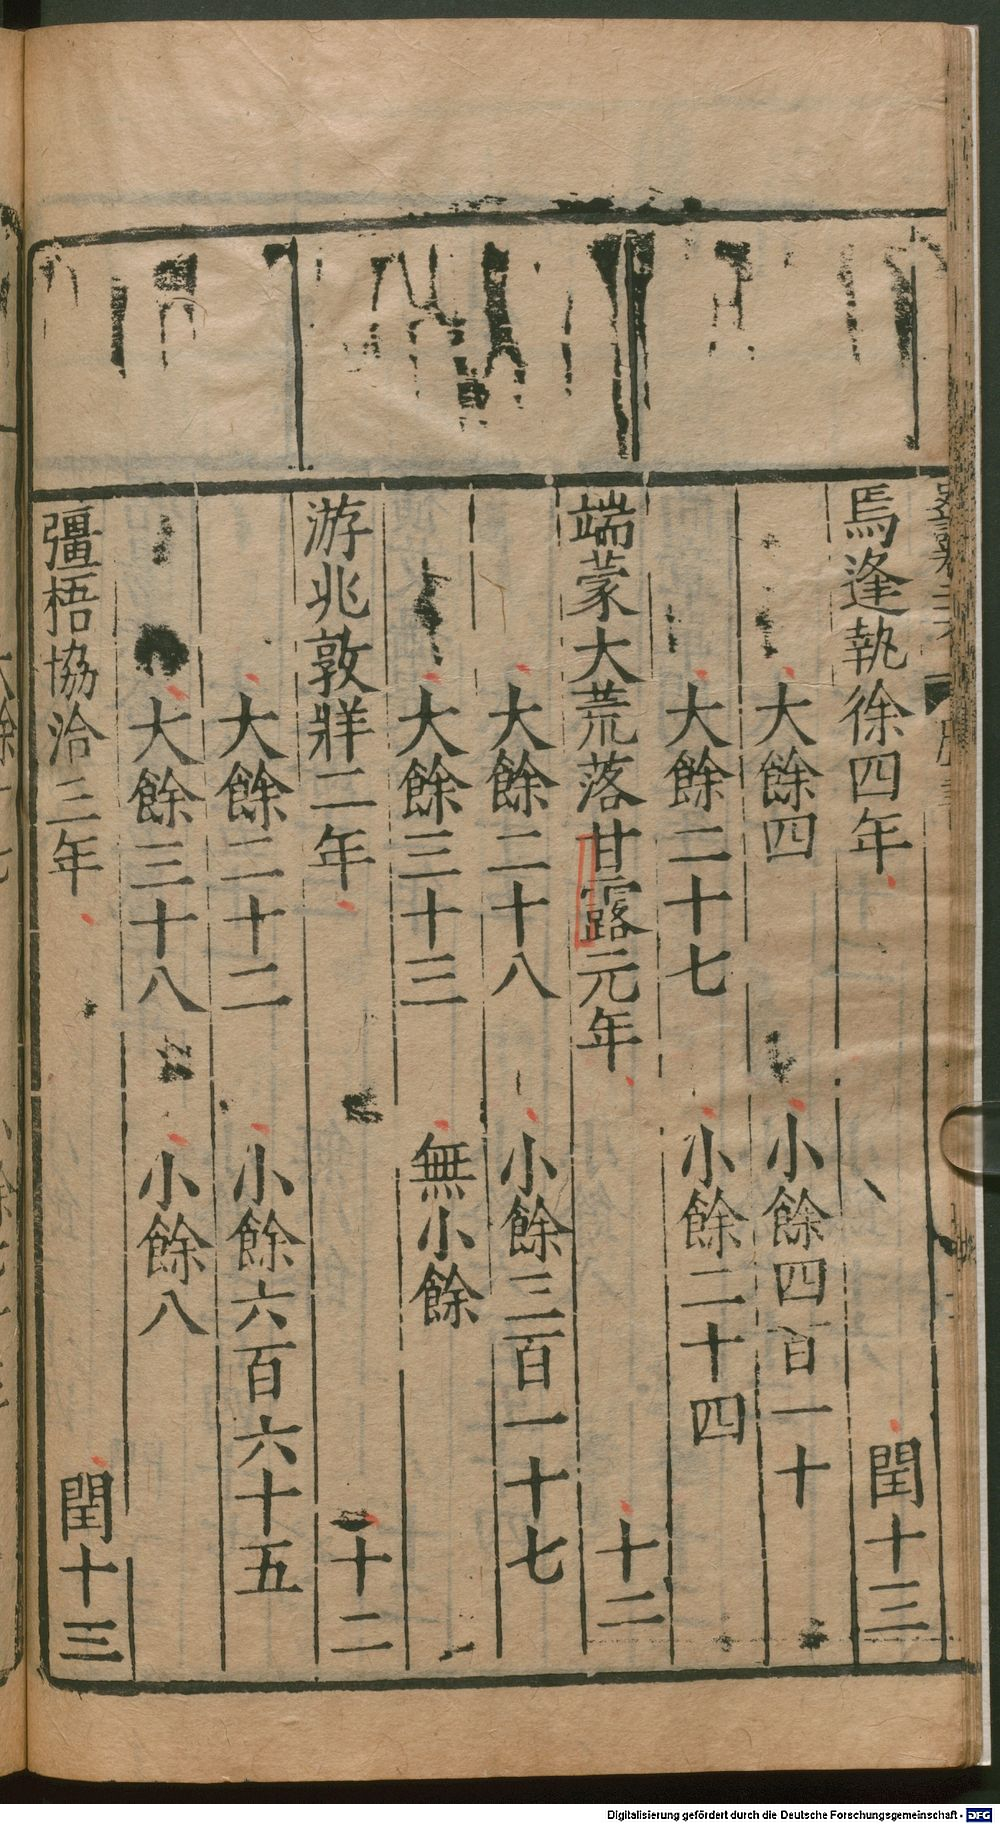 焉逢執徐四年　閏十三
大餘四　小餘四百一十
大餘二十七　小餘二十四
端蒙大荒落甘露元年　十二
大餘二十八　小餘三百一十七
大餘三十三　無小餘
游兆敦牂二年　十二
大餘二十二　小餘六百六十五
大餘三十八　小餘八
彊梧協洽三年　閏十三
Digitalisierung gefördert durch die Deutsche Forschungsgemeinschaft - DFG